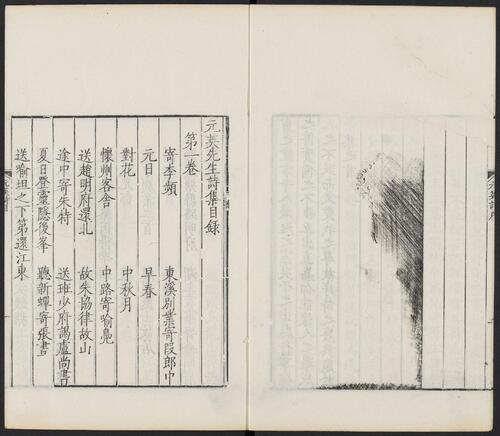 元英先生詩集目錄
第一卷
寄李頻 東溪別業寄叚郎中
元日 早春
對花 中秋月
懷州客舍 中路寄喻鳧
送趙明府還北 故朱協律故山
途中寄朱特 送班少府謁盧尚書
夏日登靈隱後峯 聽新蟬寄張晝
送喻坦之下第還江東